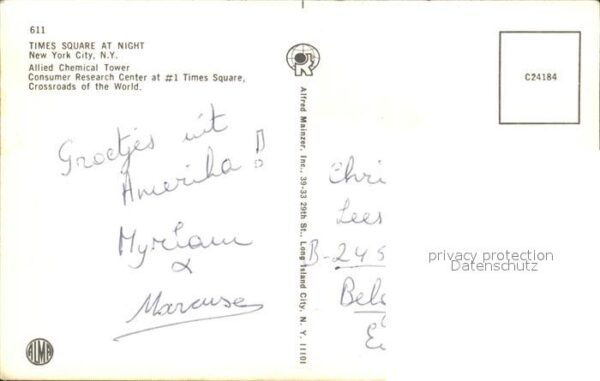 611
TIMES SQUARE AT NIGHT
New York City, N.Y.
Allied Chemical Tower
Consumer Research Center at #1 Times Square,
Crossroads of the World.
Groetjes uit
Amerika!
Myriam
&
Alfred Mainzer, Inc., 39-33 29th St., Long Island City, N. Y. 11101
C24184
Chri
Lees
B-245
Bel
privacy protection
Datenschutz
ALMA